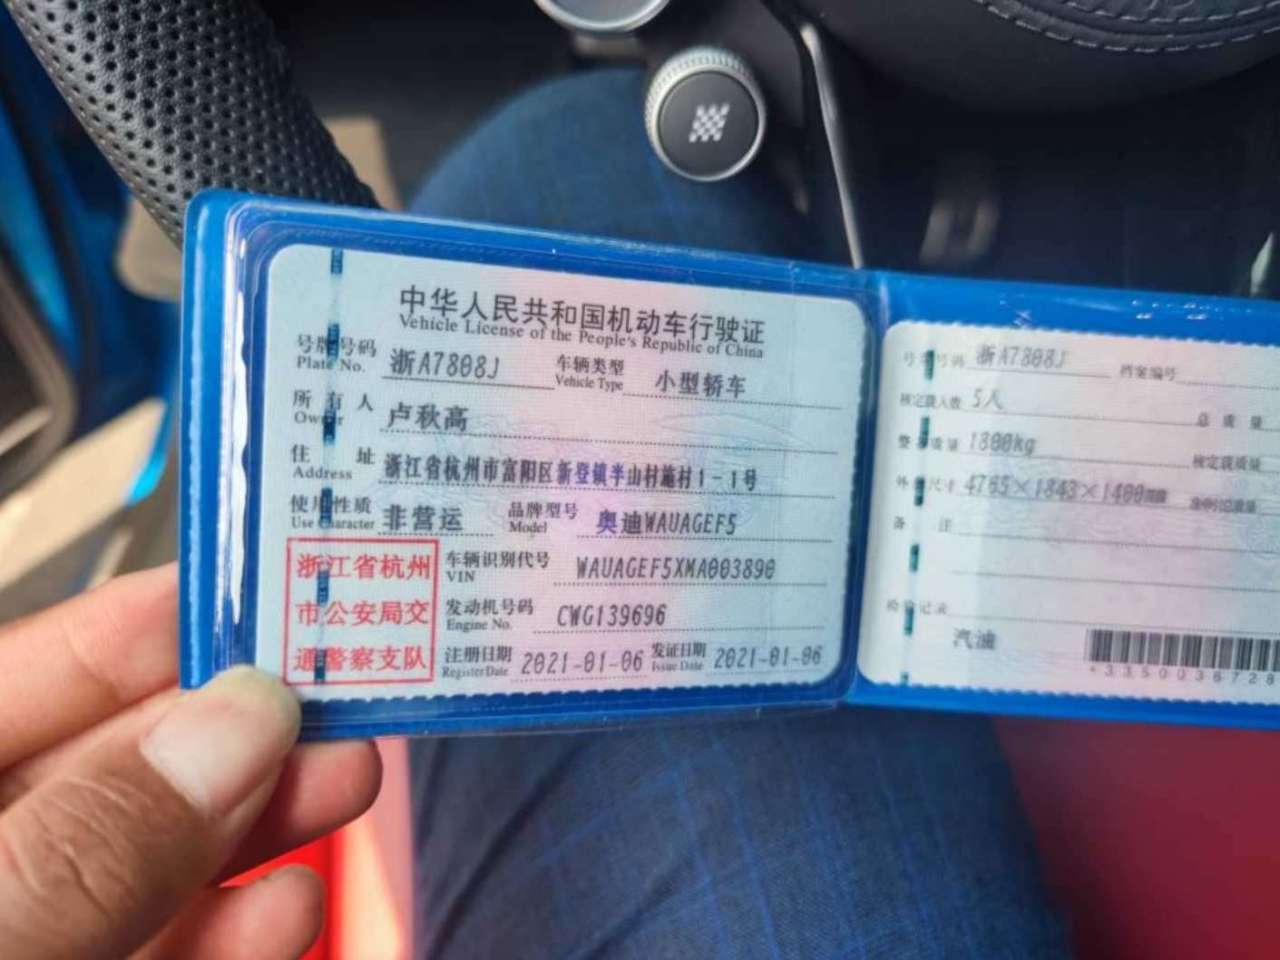 中华人民共和国机动车行驶证
Vehicle License of the People's Republic of China
号牌号码 浙A7808J 车辆类型 小型轿车
Plate No. Vehicle Type
所有人 卢秋高
Owner
住址 浙江省杭州市富阳区新登镇半山村施村1-1号
Address
使用性质 非营运 品牌型号 奥迪WAUAGEF5
Use Character Model
浙江省杭州
市公安局交
通警察支队
车辆识别代号 WAUAGEF5XMA003890
VIN
发动机号码 CWG139696
Engine No.
注册日期 2021-01-06 发证日期 2021-01-06
Register Date Issue Date
号牌号码 浙A7808J 档案编号
核定载人数 5人 总质量
整备质量 1800kg 核定载质量
外廓尺寸 4765×1843×1400mm 准牵引总质量
备注
检验记录
汽油
*3350036728